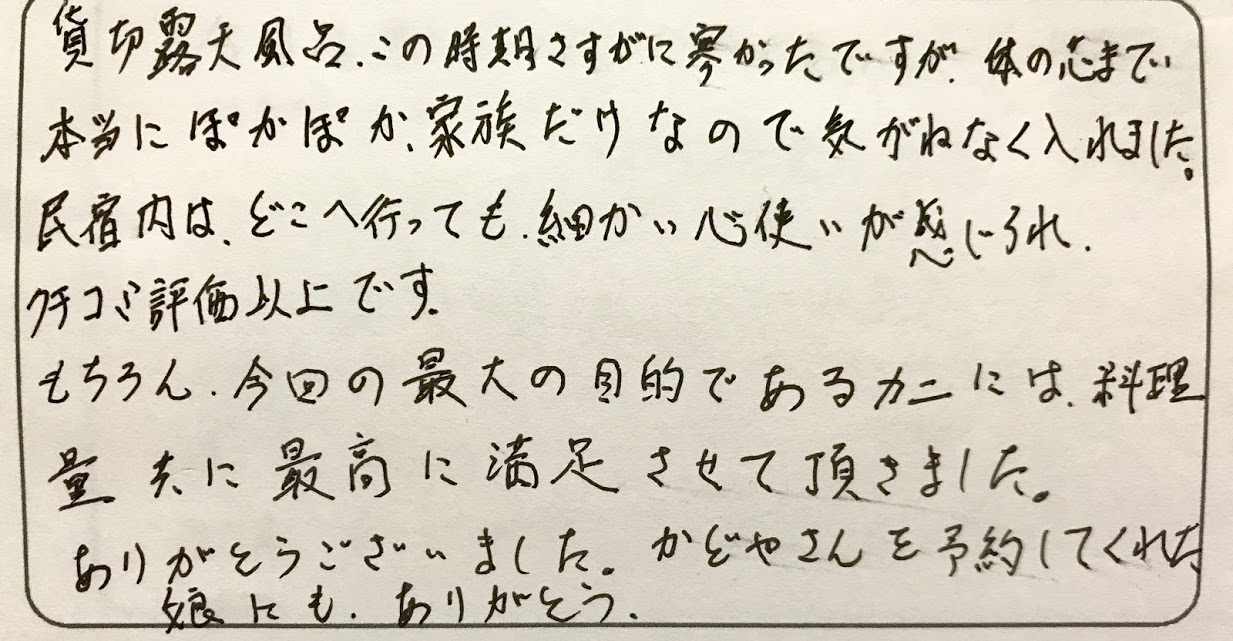 貸切露天風呂、この時期さすがに寒かったですが、体の芯まで
本当にぽかぽか、家族だけなので気がねなく入れました。
民宿内は、どこへ行っても、細かい心使いが感じられ、
クチコミ評価以上です。
もちろん、今回の最大の目的であるカニには、料理
量共に最高に満足させて頂きました。
ありがとうございました。かどやさんを予約してくれた
娘にも、ありがとう。